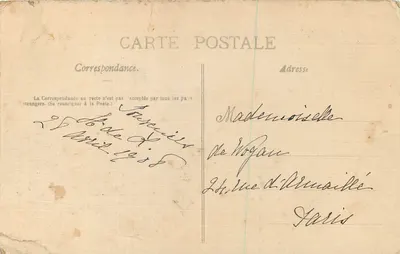 CARTE POSTALE
Correspondance.
Adresse
La Correspondance au verso n'est pas acceptée par tous les pays
étrangers. (Se renseigner à la Poste)
Souvenirs
25 Avril 1908
Mademoiselle
de Wogan
24, rue d'Armaillé
Paris